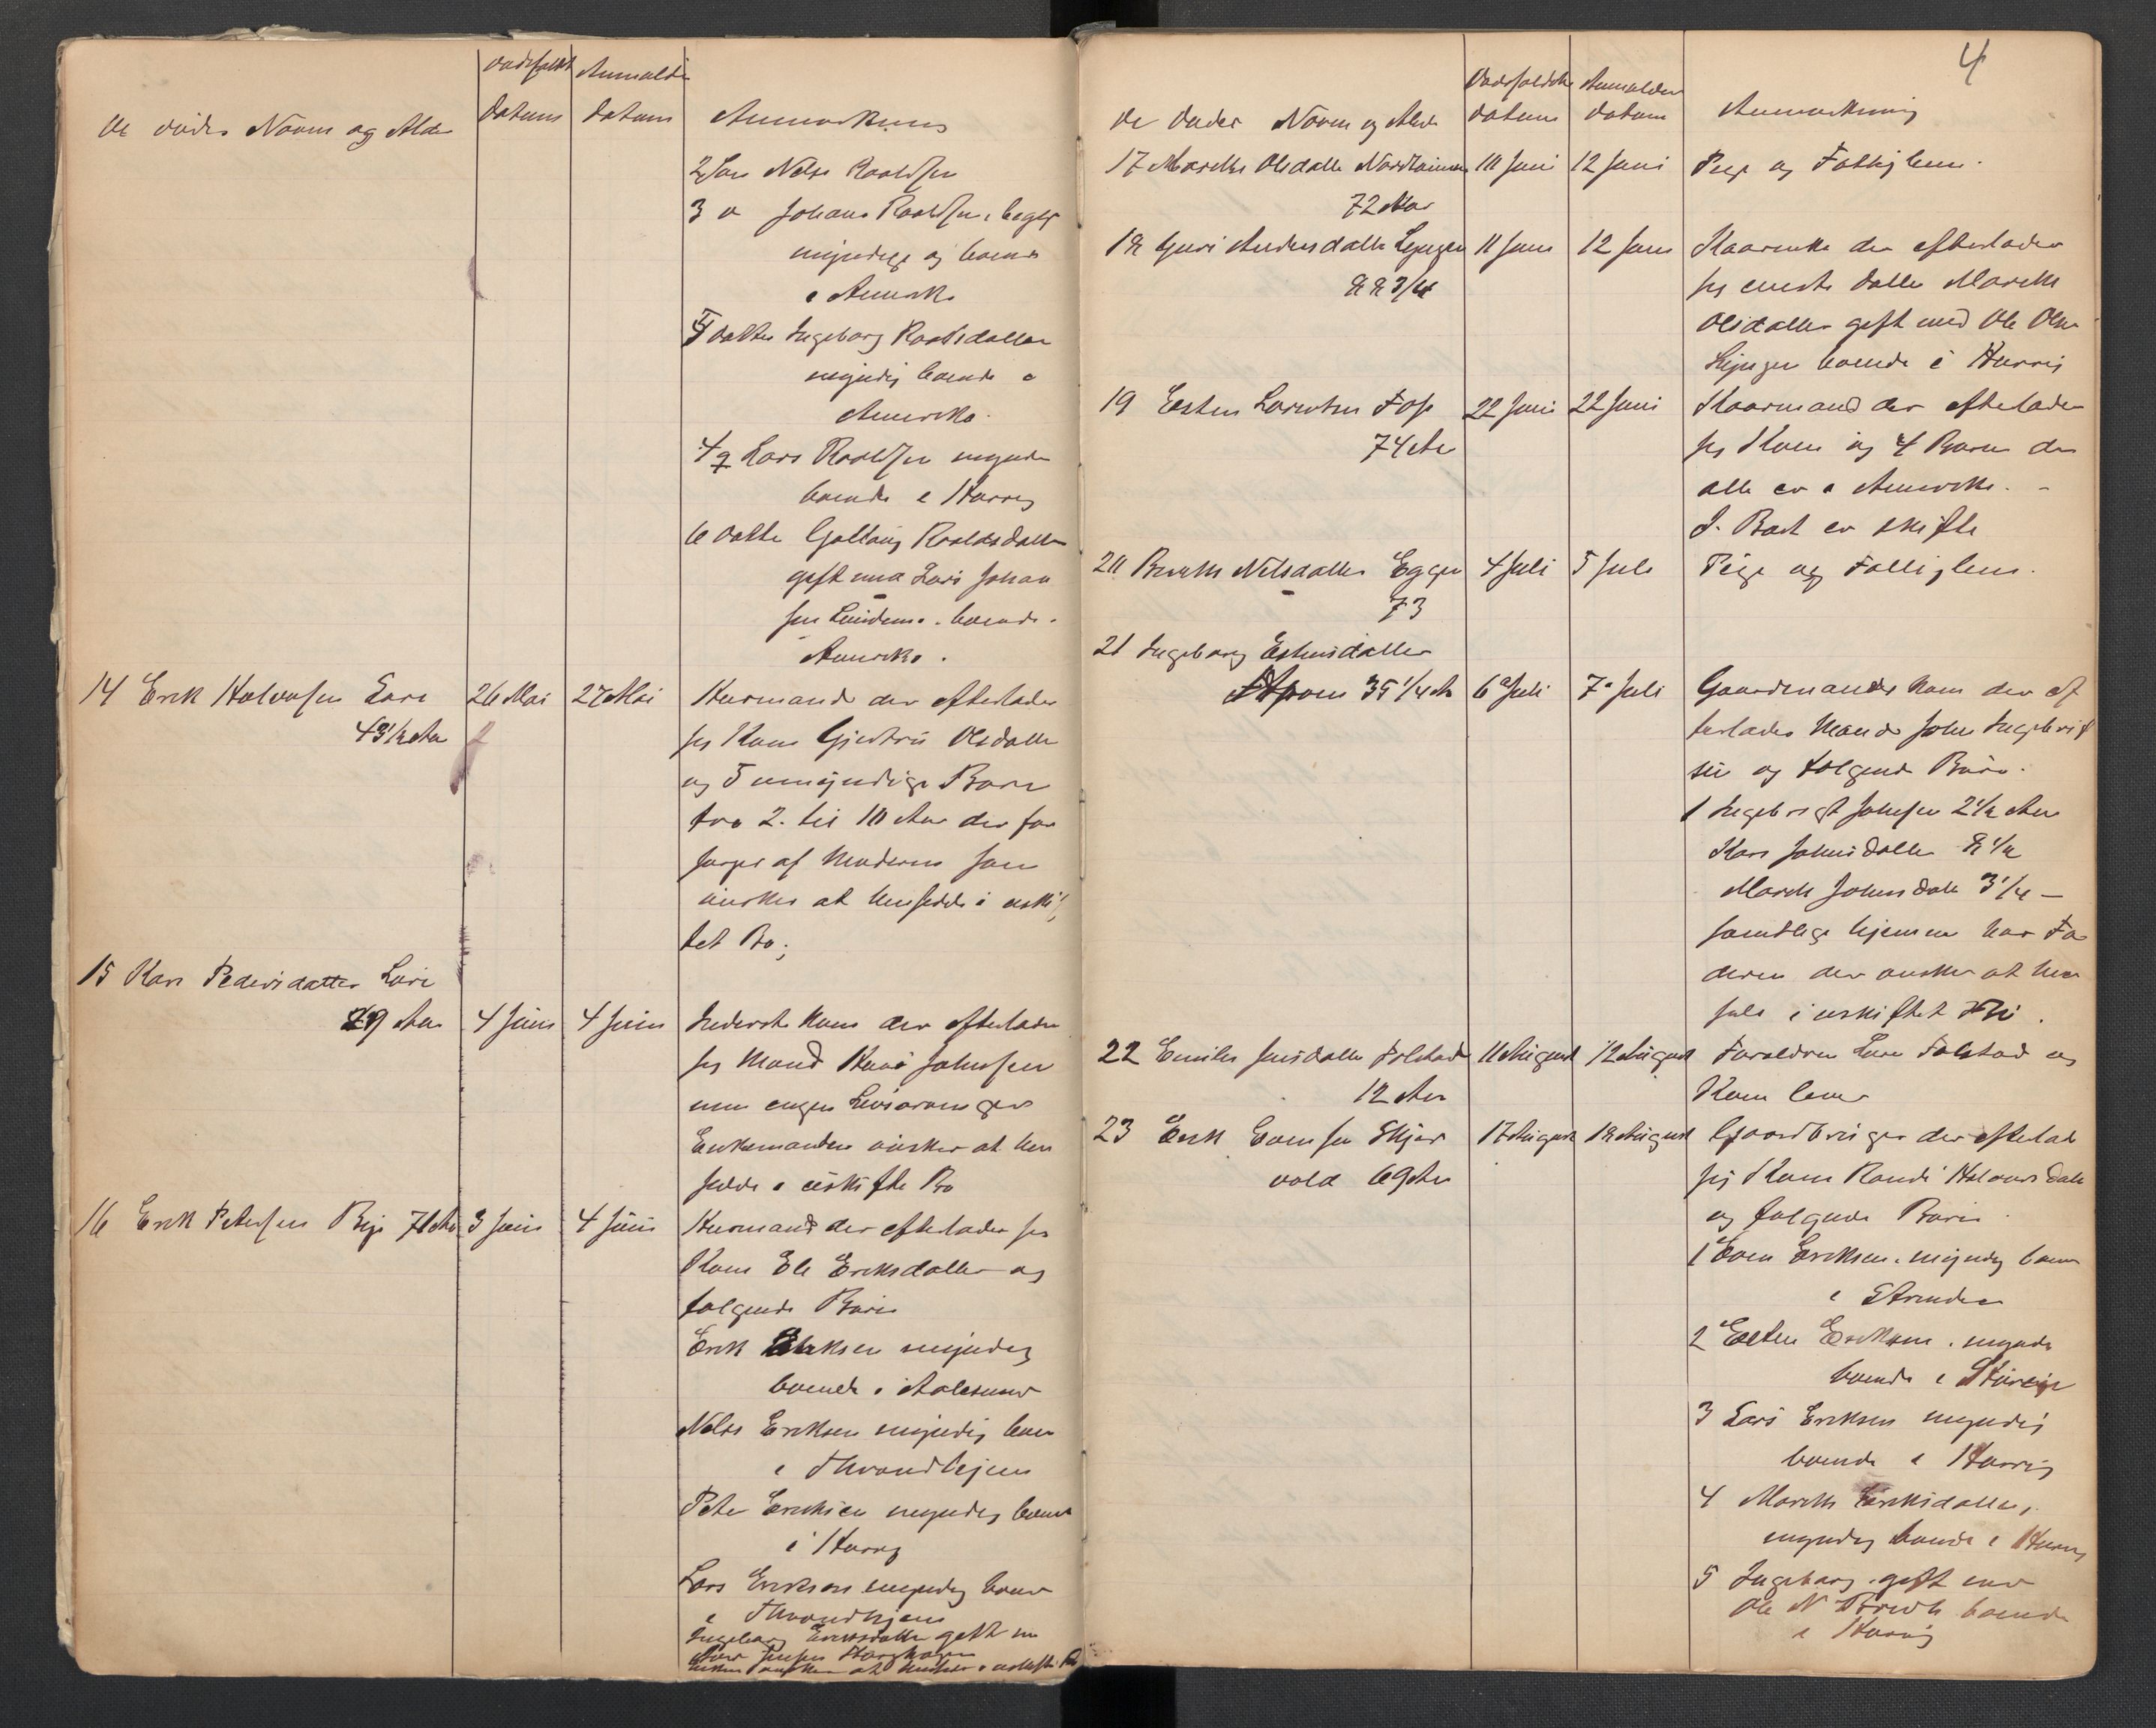 De dødes Navn og Alder
Dødsfalds Datum
Anmeldt Datum
Anmerkning
2 Søn Nels Roaldsen
3 " Johans Roaldsen, begge
myndige og boende
i Amerika
4 Datter Ingeborg Roaldsdatter
myndig boende i
Amerika.
Lars Roaldsen mynde
boende i Horrig
6 Datter Gollaug Roaldsdatter
gift med Lars Johan
sen boende i
Amerika.
14 Erik Halvorsen 26 Mai 27 Mai Husmand der efterlader
43 1/2 Aar sig Kone Gjertru Olsdatter
og 5 umyndige Børn
fra 2 til 10 Aar der for
sørges af Moderen som
ønsker at hensidde i uskif
tet Bo;
15 Kari Pedersdatter
79 Aar 4 Juni 4 Juni Inderst Kone der efterlader
sig Mand Johnsen
men ingen Livsarvinger
Enkemanden ønsker at hen
sidde i uskifte Bo
16 Erik Petersen 71 Aar 3 Juni 4 Juni Husmand der efterlader sig
Kone Eli Eriksdatter og
følgende Børn
Erik Eriksen myndig
boende i Aalesund
Nels Eriksen myndig boen
i Throndhjem
Peter Eriksen myndig boend
i Horrig
Lars Eriksen myndig boend
i Throndhjem
Ingeborg Eriksdatter gift m
Enken ønsker at hensidde i uskifte Bo
4
De Dødes Navn og Alder
Dødsfaldets Datum
Anmeldes Datum
Anmerkning
17 Marith Olsdatter 10 Juni 12 Juni Pige og Fattiglem.
72 Aar
18 Guri Andersdatter 11 Juni 12 Juni Kaarenke der efterlader
88 3/4 sig eneste Datter Marith
Olsdatter gift med Ole Olsen
boende i Horrig
19 Esten Larsen Foss 22 Juni 22 Juni Kaarmand der efterlader
74 Aar sig Kone og 4 Børn der
alle er i Amerika. -
I. Boet er skifte
20 Berith Nilsdatter Eggen 4 Juli 5 Juli Pige og Fattiglem.
73
21 Ingeborg Estensdatter
35 1/4 A 6 Juli 7 Juli Gaardmands Kone der ef
terlader Mand John Ingebrigt
sen og følgende Børn.
1 Ingebrigt Johnsen 2 1/2 Aar
Kari Johnsdatter 8 1/2
Marith Johnsdatt 3 1/4 -
samtlige hjemme hos Fa
deren der ønsker at hen
sidde i uskiftet Bo.
22 Emilie Larsdatter Folstad 11 August 12 August Forældre Lars Folstad og
12 Aar Kone lever
23 Erik Evensen Skjær 17 August 18 August Gaardbruger der efterlad
vold 69 Aar sig Kone Randi Halvorsdatt
og følgende Børn.
1 Even Eriksen, myndig boen
i Strinden
2 Esten Eriksen, myndi
boende i Støren
3 Lars Eriksen myndig
boende i Horrig
4 Marith Eriksdatter,
myndig boende i Horrig
5 Ingeborg, gift med
Ole N boende
i Horrig